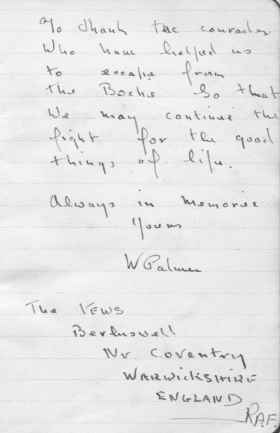 To thank the comrades
Who have helped us
to escape from
the Boche So that
We may continue the
fight for the good
things of life.
Always in memorie
Yours
W Palmer
The Yews
Berkswell
Nr Coventry
WARWICKSHIRE
ENGLAND
RAF.